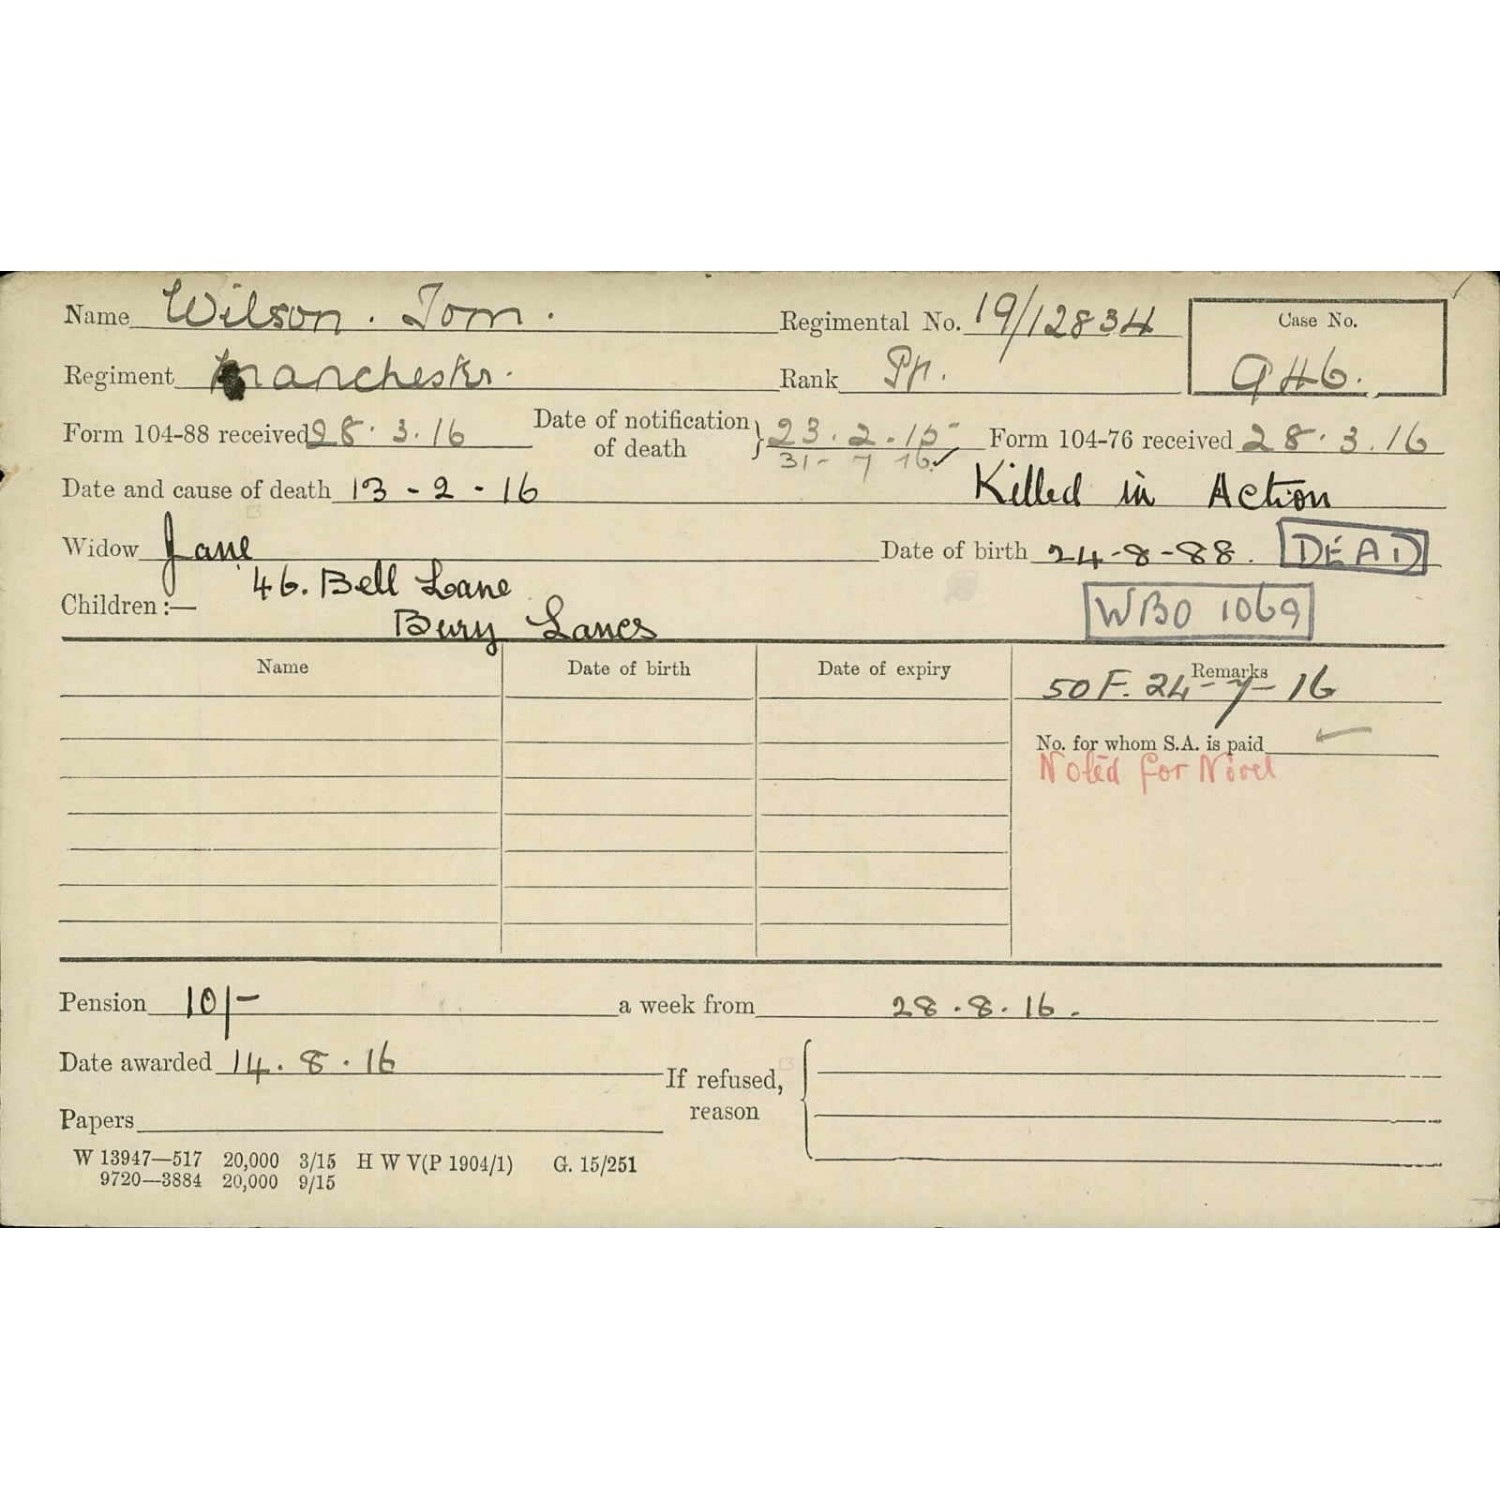 Name Wilson . Tom . Regimental No. 19/12834 Case No.
Regiment Manchester. Rank 946.
Form 104-88 received 28. 3. 16 Date of notification of death } 23. 2. 15 Form 104-76 received 28. 3. 16
31- 7 16
Date and cause of death 13 - 2 - 16 Killed in Action
Widow Jane Date of birth 24-8-88. DEAD
46. Bell Lane
Children :— Bury Lancs WBO 1069
Name Date of birth Date of expiry Remarks
50F. 24-7-16
No. for whom S.A. is paid
Noted for
Pension 10/- a week from 28.8.16.
Date awarded 14. 8. 16 If refused, reason
Papers
W 13947—517 20,000 3/15 H W V(P 1904/1) G. 15/251
9720—3884 20,000 9/15